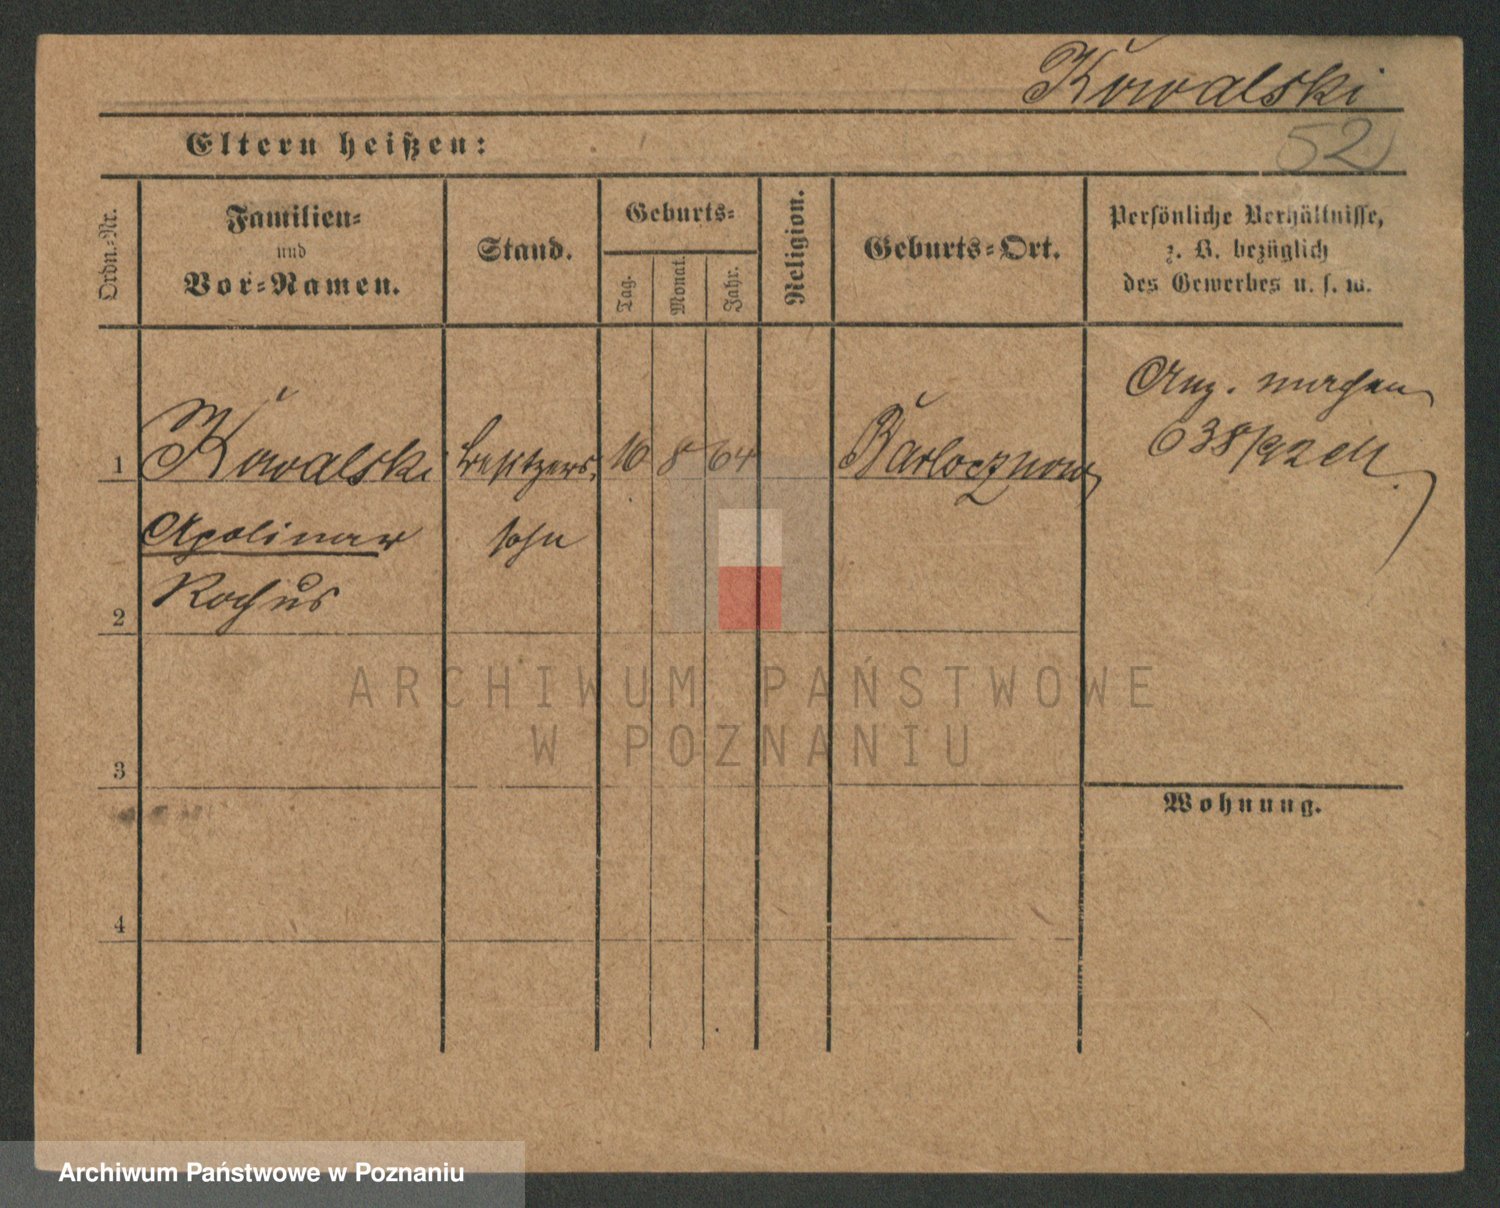 Kowalski
Eltern heißen:
52
Ordn.-Nr.
Familien-
und
Vor-Namen.
Stand.
Geburts-
Tag.
Monat.
Jahr.
Religion.
Geburts-Ort.
Persönliche Verhältnisse,
z. B. bezüglich
des Gewerbes u. s. w.
1
Kowalski
Besitzers-
10
8
64
Barlocznow
Anz. machen
638/92 M
Apolinar
sohn
2
Rochus
3
Wohnung.
4
ARCHIWUM PAŃSTWOWE
W POZNANIU
Archiwum Państwowe w Poznaniu